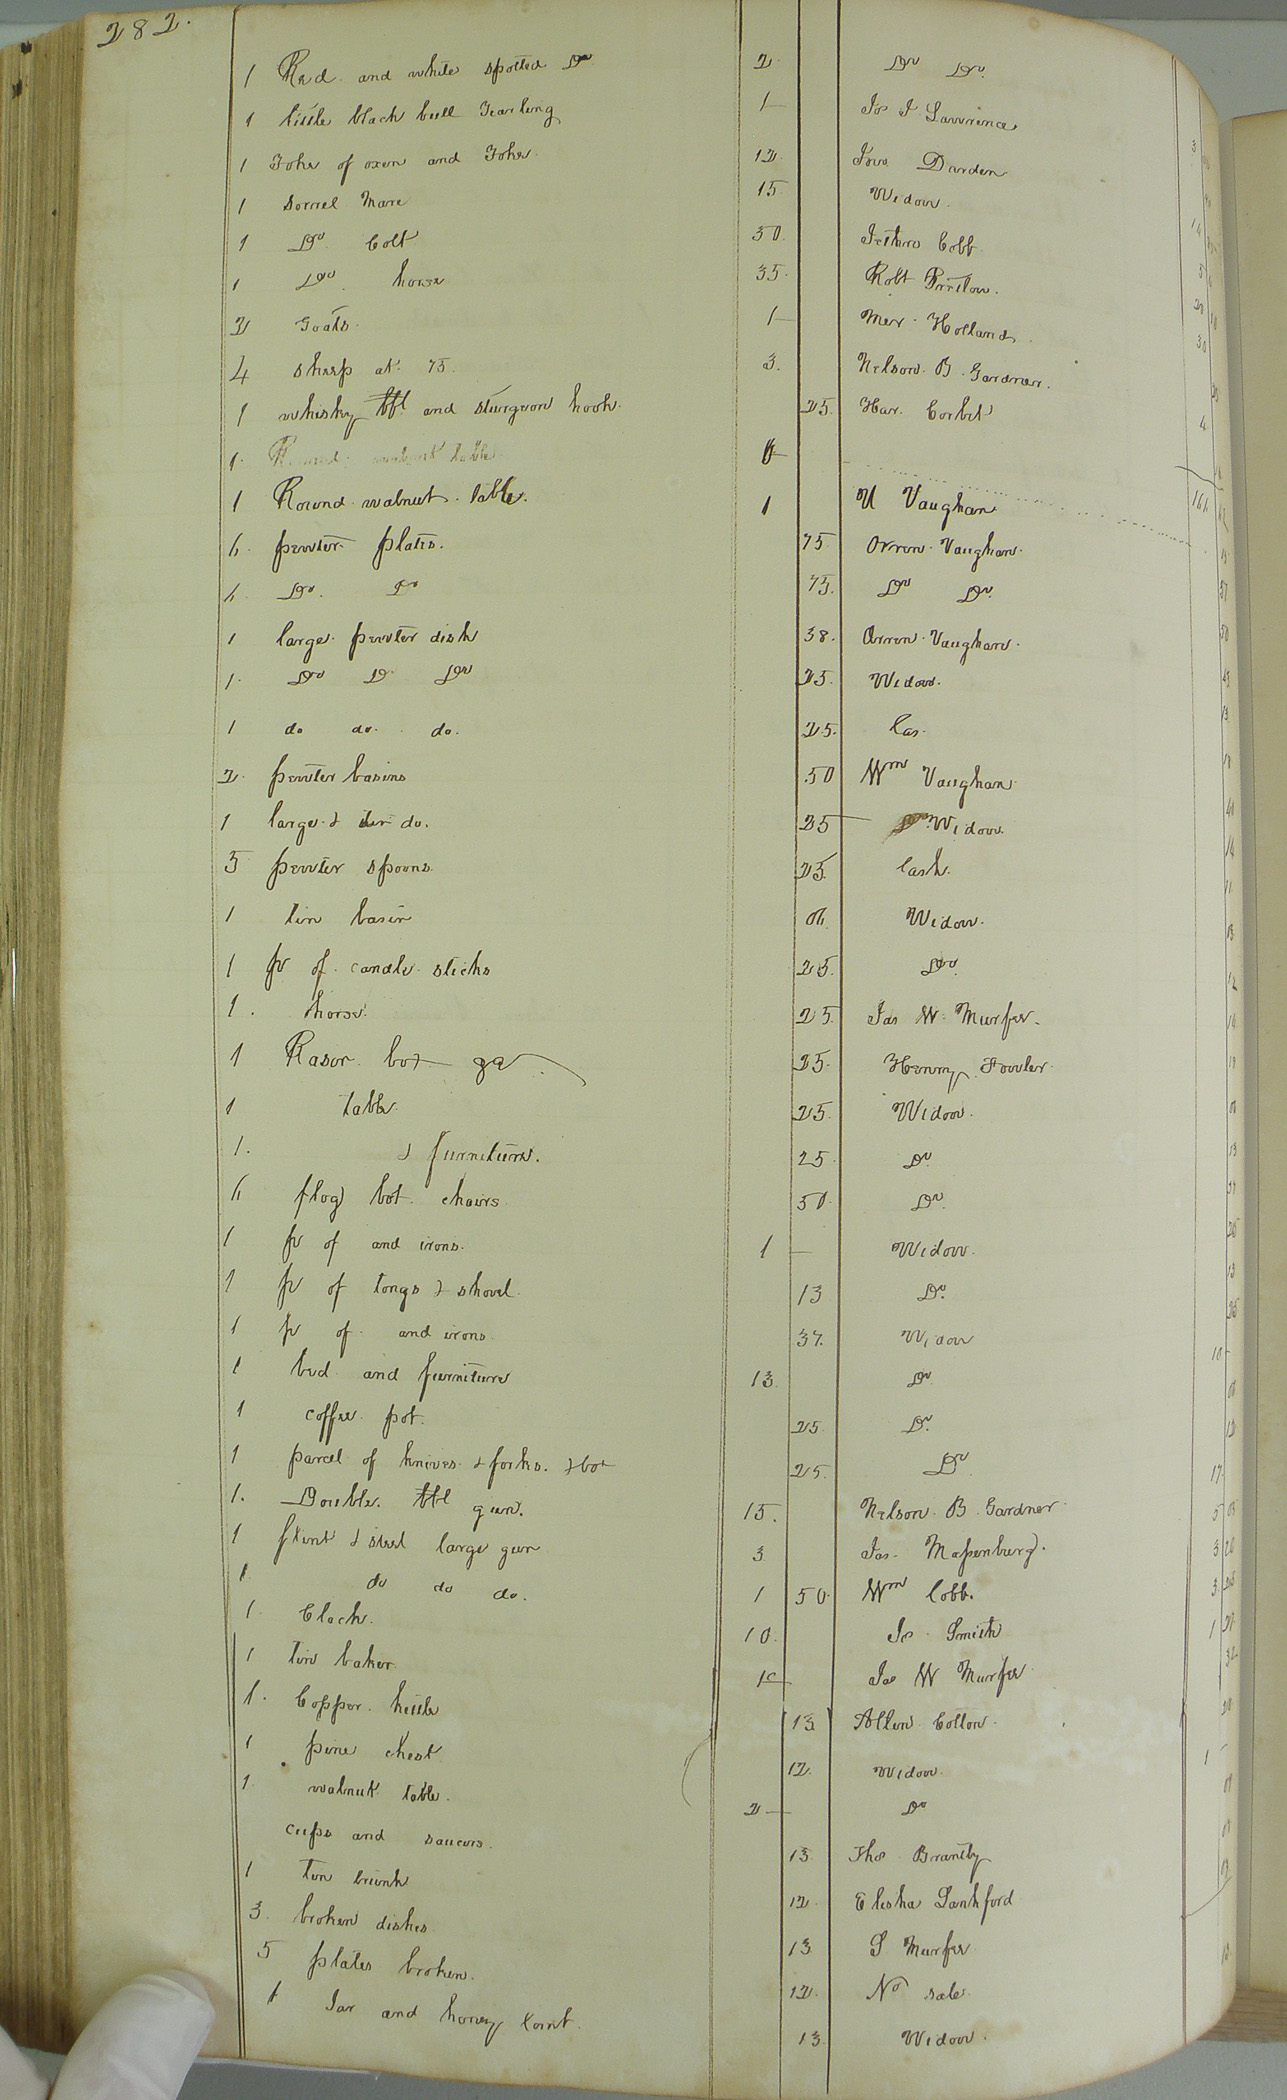 282.
1 Red and white spotted Do 2 Do Do.
1 little black bull Yearling 1 — Js J Lawrence
1 Yoke of oxen and Yoke. 12 Darden
1 sorrel Mare 15 Widow.
1 Do. Colt 30. Jethro Cobb
1 Do. horse 35. Robt
2 Goats. 1 — Mer. Holland.
4 sheep at 75. 3. Nelson. B. Gardner.
1 whisky bbl and sturgeon hook. 25. Har. Corbit
1. Round walnut table
1 Round walnut table. 1 U Vaughan
6. pewter plates. 75. Orren Vaughan.
6. Do. Do 75. Do Do.
1 large pewter dish 38. Orren Vaughan.
1. Do D Do 25. Widow.
1 do do. do. 25. Cas.
2. pewter basins .50 Wm Vaughan
1 large & do. 25 — Widow
5 pewter spoons. 25. Cash.
1 tin basin 06. Widow.
1 pr of candle sticks 25. Do.
1. horse. 25. Jas W. Murfee.
1 Rasor box 25. Henry Fowler.
1 table. 25. Widow.
1. & furniture. 25. Do
6 flag bot. chairs 50. Do.
1 pr of and irons. 1 — Widow.
1 pr of tongs & shovel. 13 Do.
1 pr of and irons. 37. Widow
1 bed and furniture 13. Do
1 coffee pot. 25. Do.
1 parcel of knives & forks. & box 25. Do.
1. Double bbl gun. 15. Nelson. B. Gardner
1 flint & steel large gun 3 Jas. Massenburg.
1 do do do. 1 50. Wm Cobb.
1. Clock. 10. Js. Smith
1 tin baker Jas W Murfee
1. Copper kettle 13. Allen Cotton.
1 pine chest 12. Widow.
1. walnut table. 2 — Do
cups and saucers. 13. Thos Brantly
1 tin trunk 12 Elisha Lankford
3. broken dishes 13. S Murfee
5 plates broken. 12. No sale.
1 Jar and honey 13. Widow.